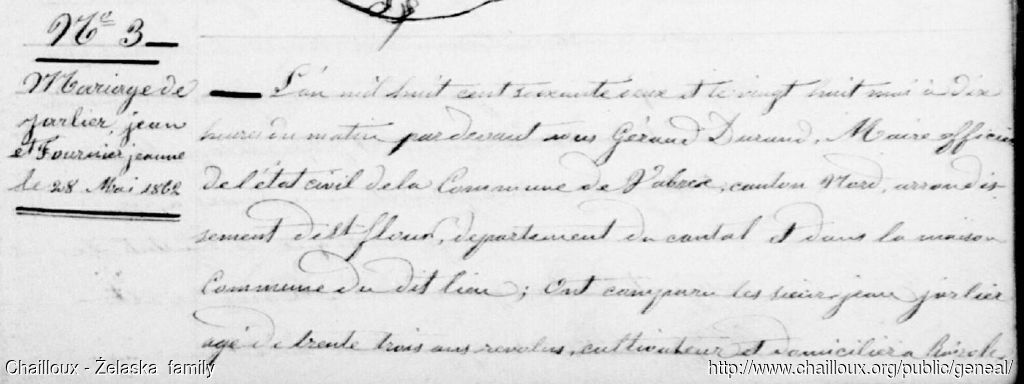 N° 3
Mariage de
jarlier, jean
et Fournier jeanne
le 28 Mai 1862
L'an mil huit cent soixante deux et le vingt huit mai à dix
heures du matin par devant nous Géraud Durand, Maire officier
de l'état civil de la Commune de Vabres, canton Nord, arrondis
sement de St flour, departement du cantal et dans la maison
Commune du dit lieu; Ont comparu les sieur jean jarlier
agé de trente trois ans revolus, cultivateur et domicilier a
Chailloux - Żelaska family
http://www.chailloux.org/public/geneal/